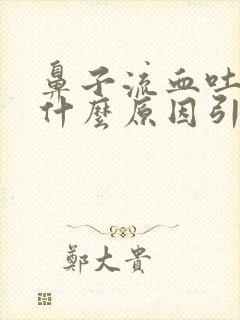 鼻子流血吐
什麼原因引
鄭大貴